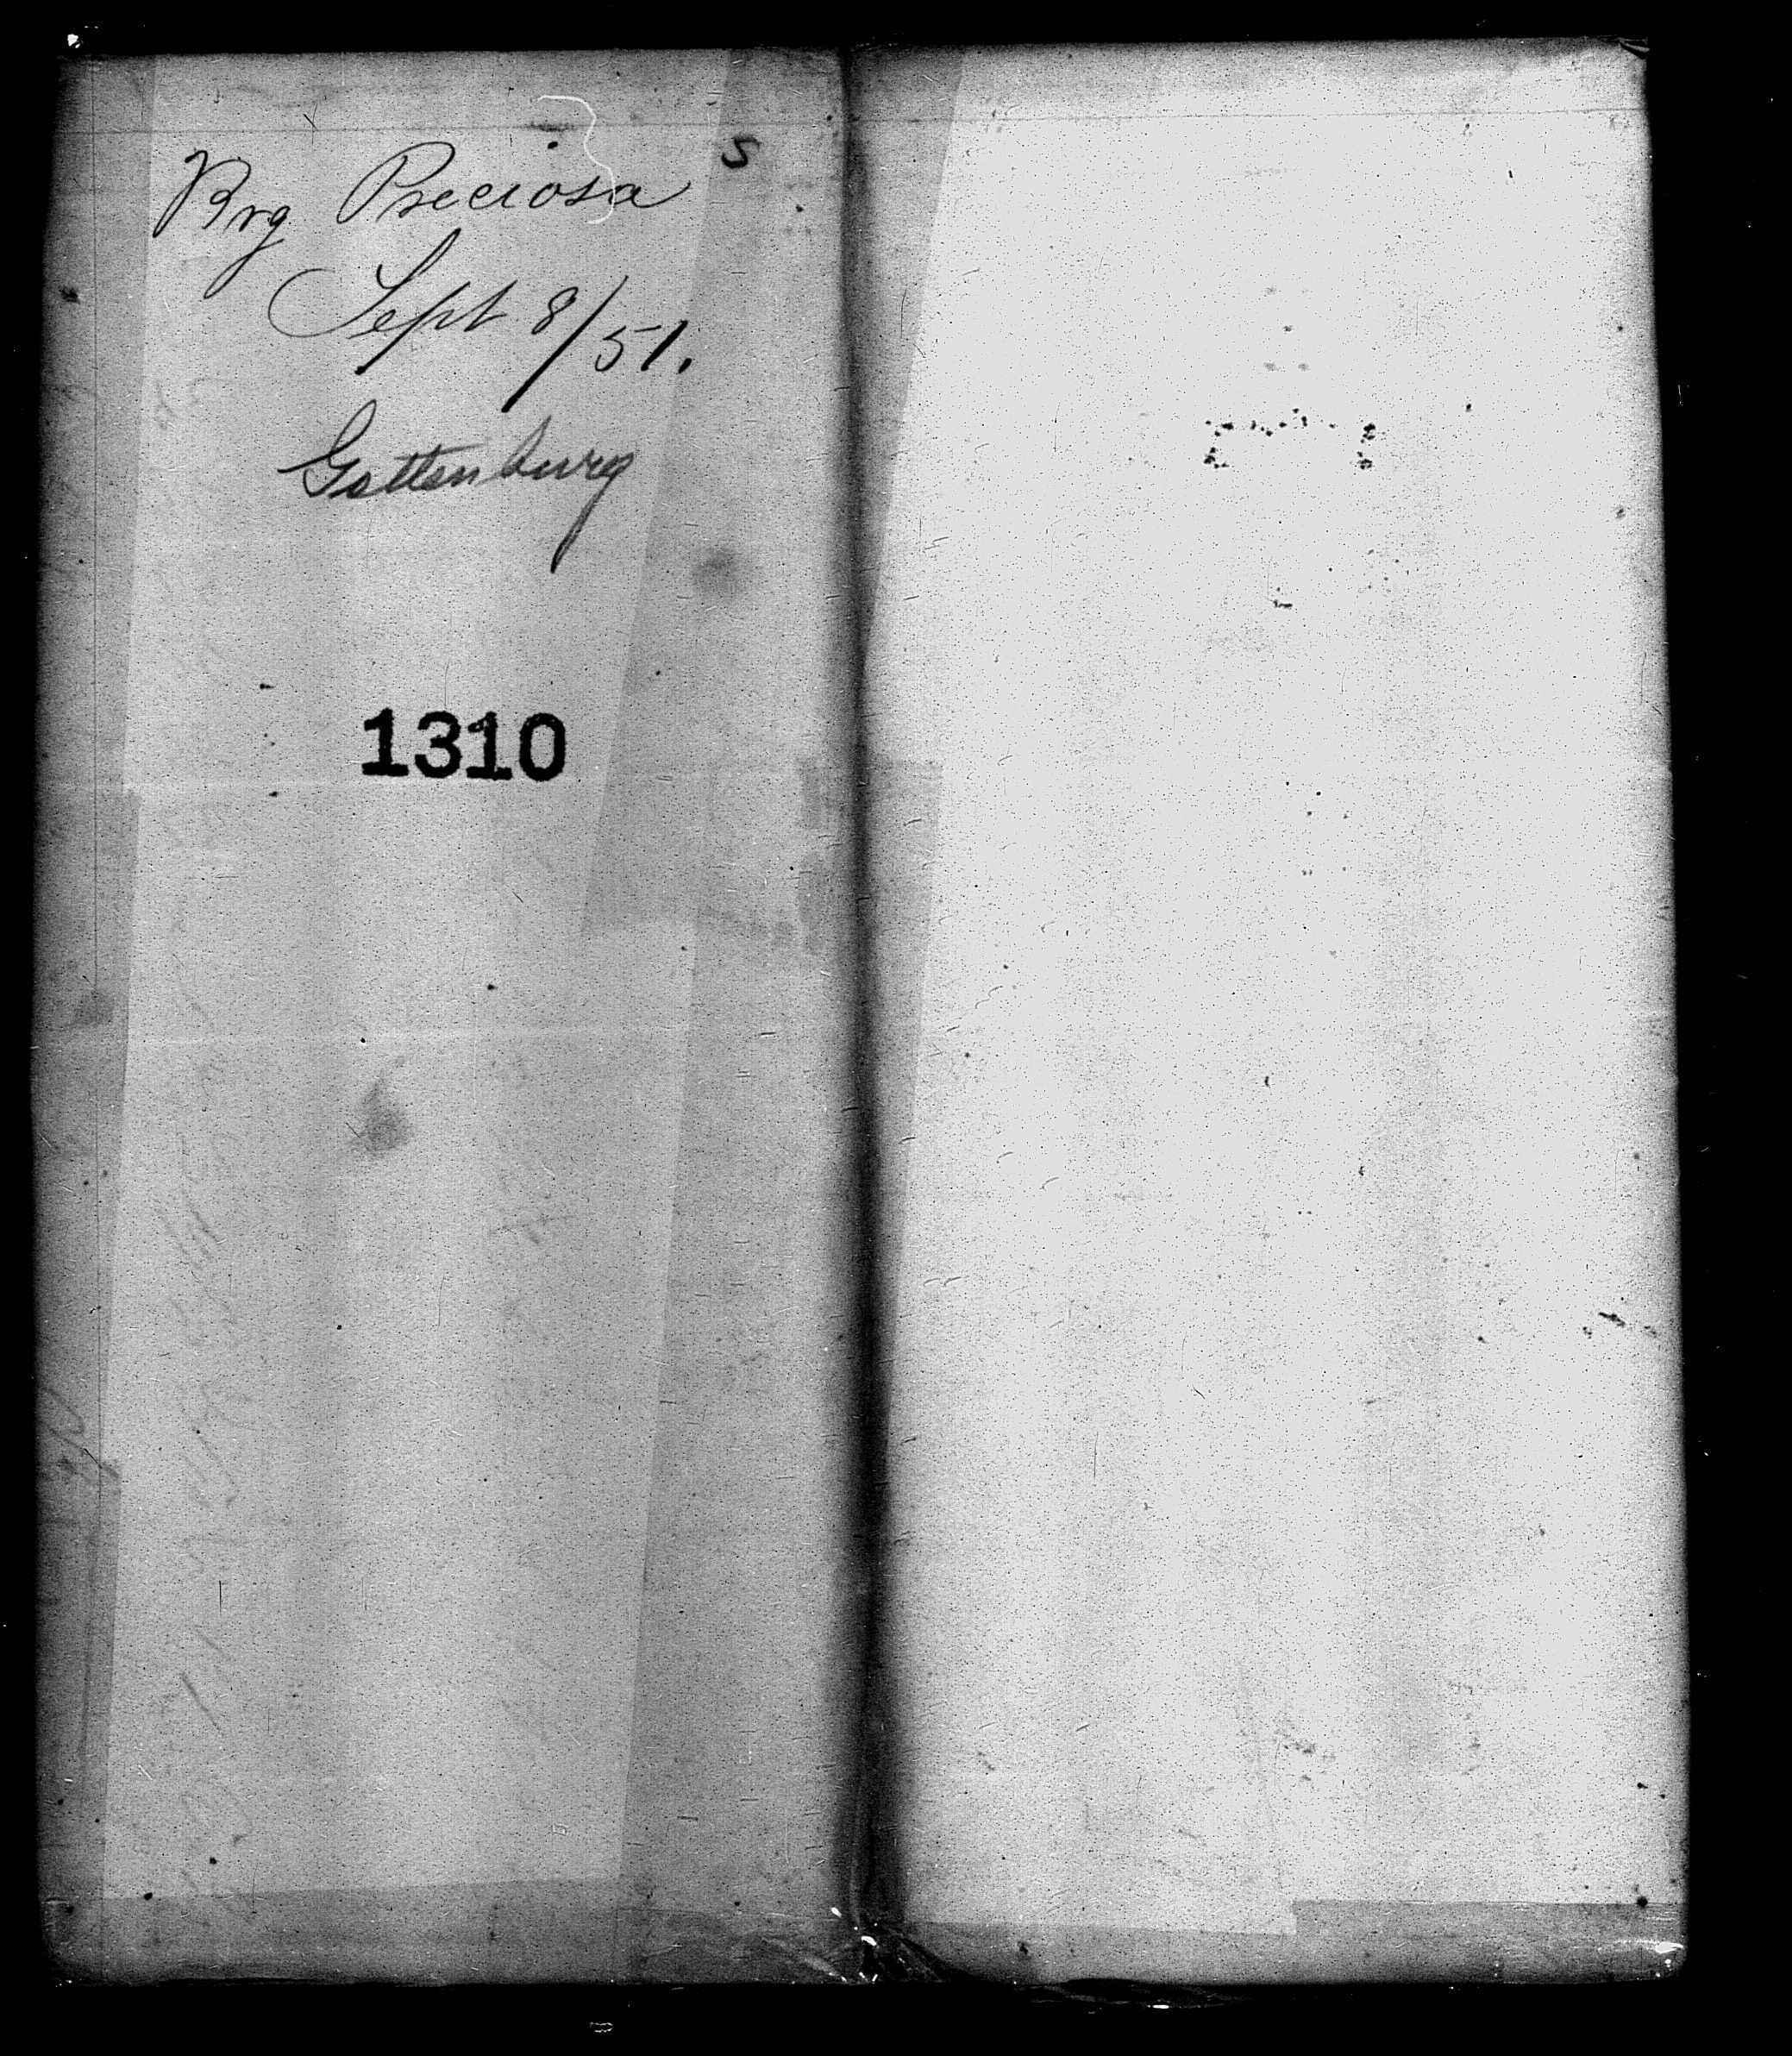 S
Brg Preciosa
Sept 8/51.
Gottenburg
1310